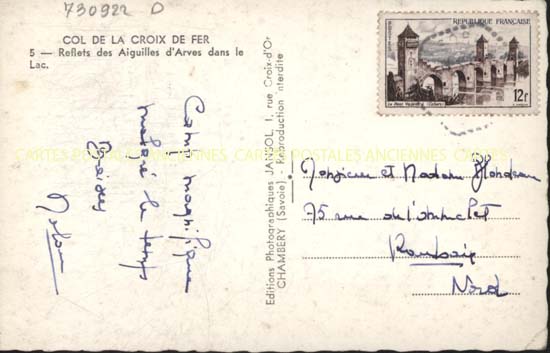 730922 D
COL DE LA CROIX DE FER
5 — Reflets des Aiguilles d'Arves dans le
Lac.
Editions Photographiques JANSOL, 1, rue Croix-d'Or
CHAMBERY (Savoie) - Reproduction interdite
REPUBLIQUE FRANÇAISE
12f
CARTES POSTALES ANCIENNES CARTES POSTALES ANCIENNES CARTES
magnifique
malgré le temps
Baisers
Monsieur et Madame
75 rue de
Roubaix
Nord